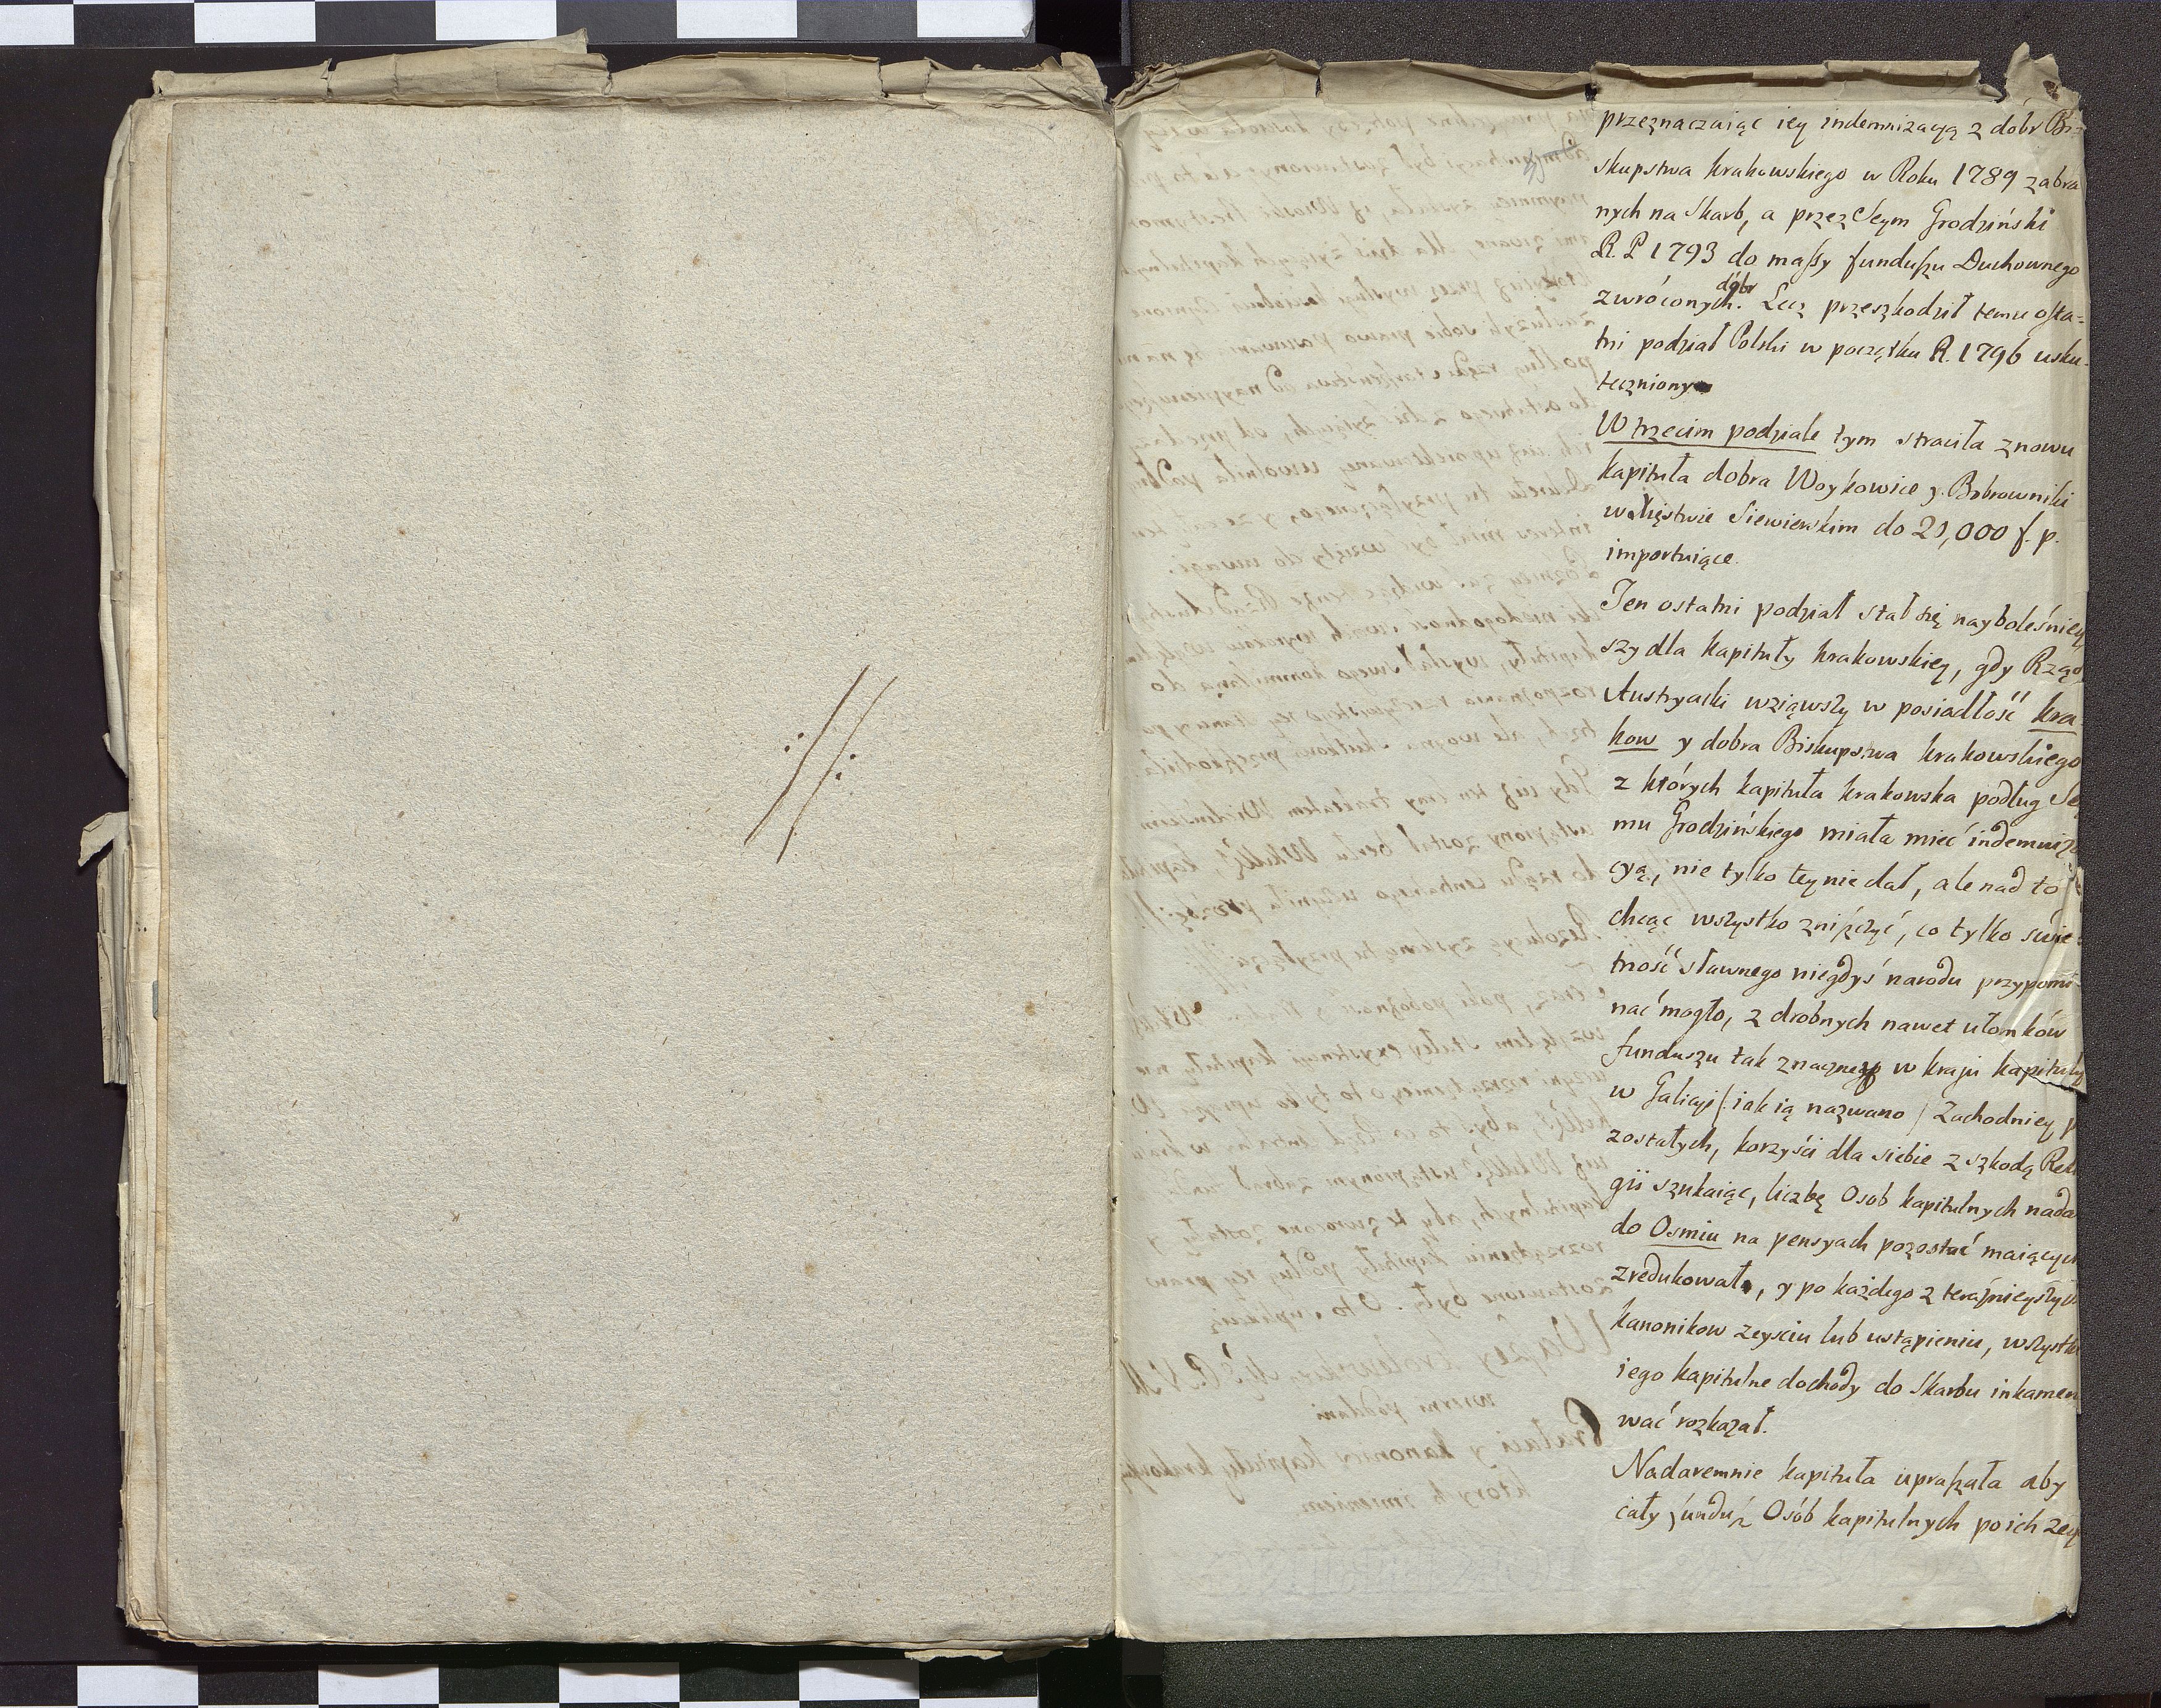 przeznaczaiąc iey indemnizacyą z dóbr Bi=
skupstwa krakowskiego w Roku 1789 zabra
nych na Skarb, a przez Seym Grodziński
R. P. 1793 do massy funduszu Duchownego
zwróconych dóbr. Lecz przeszkodził temu osta=
tni podział Polski w początku R. 1796 usku-
teczniony
W trzecim podziale tym straciła znowu
kapituła dobra Woykowice y Bobrowniki
w Xięstwie Siewierskim do 20,000 f. p.
importuiące.
Ten ostatni podział stał się nayboleśniey
szy dla kapituły krakowskiey, gdy Rząd
Austryacki wziąwszy w posiadłość kra
kow y dobra Biskupstwa krakowskiego
z których kapituła krakowska podług Sey
mu Grodzińskiego miała mieć indemniza
cyą, nie tylko tey nie dał, ale nad to
chcąc wszystko zniszczyć, co tylko świe=
tność sławnego niegdyś narodu przypomi-
nać mogło, z drobnych nawet ułomków
funduszu tak znaczney w kraju kapituły
w Galicyi /: iak ią nazwano / Zachodniey p
zostałych, korzyści dla siebie z szkodą Reli
gii szukaiąc, liczbę Osob kapitulnych nada
do Osmiu na pensyach pozostać maiących
zredukował, y po każdego z teraźnieyszych
kanonikow zeysciu lub ustąpieniu, wszystk
iego kapitulne dochody do Skarbu inkamer
wać rozkazał.
Nadaremnie kapituła upraszała aby
cały fundusz Osób kapitulnych po ich zey